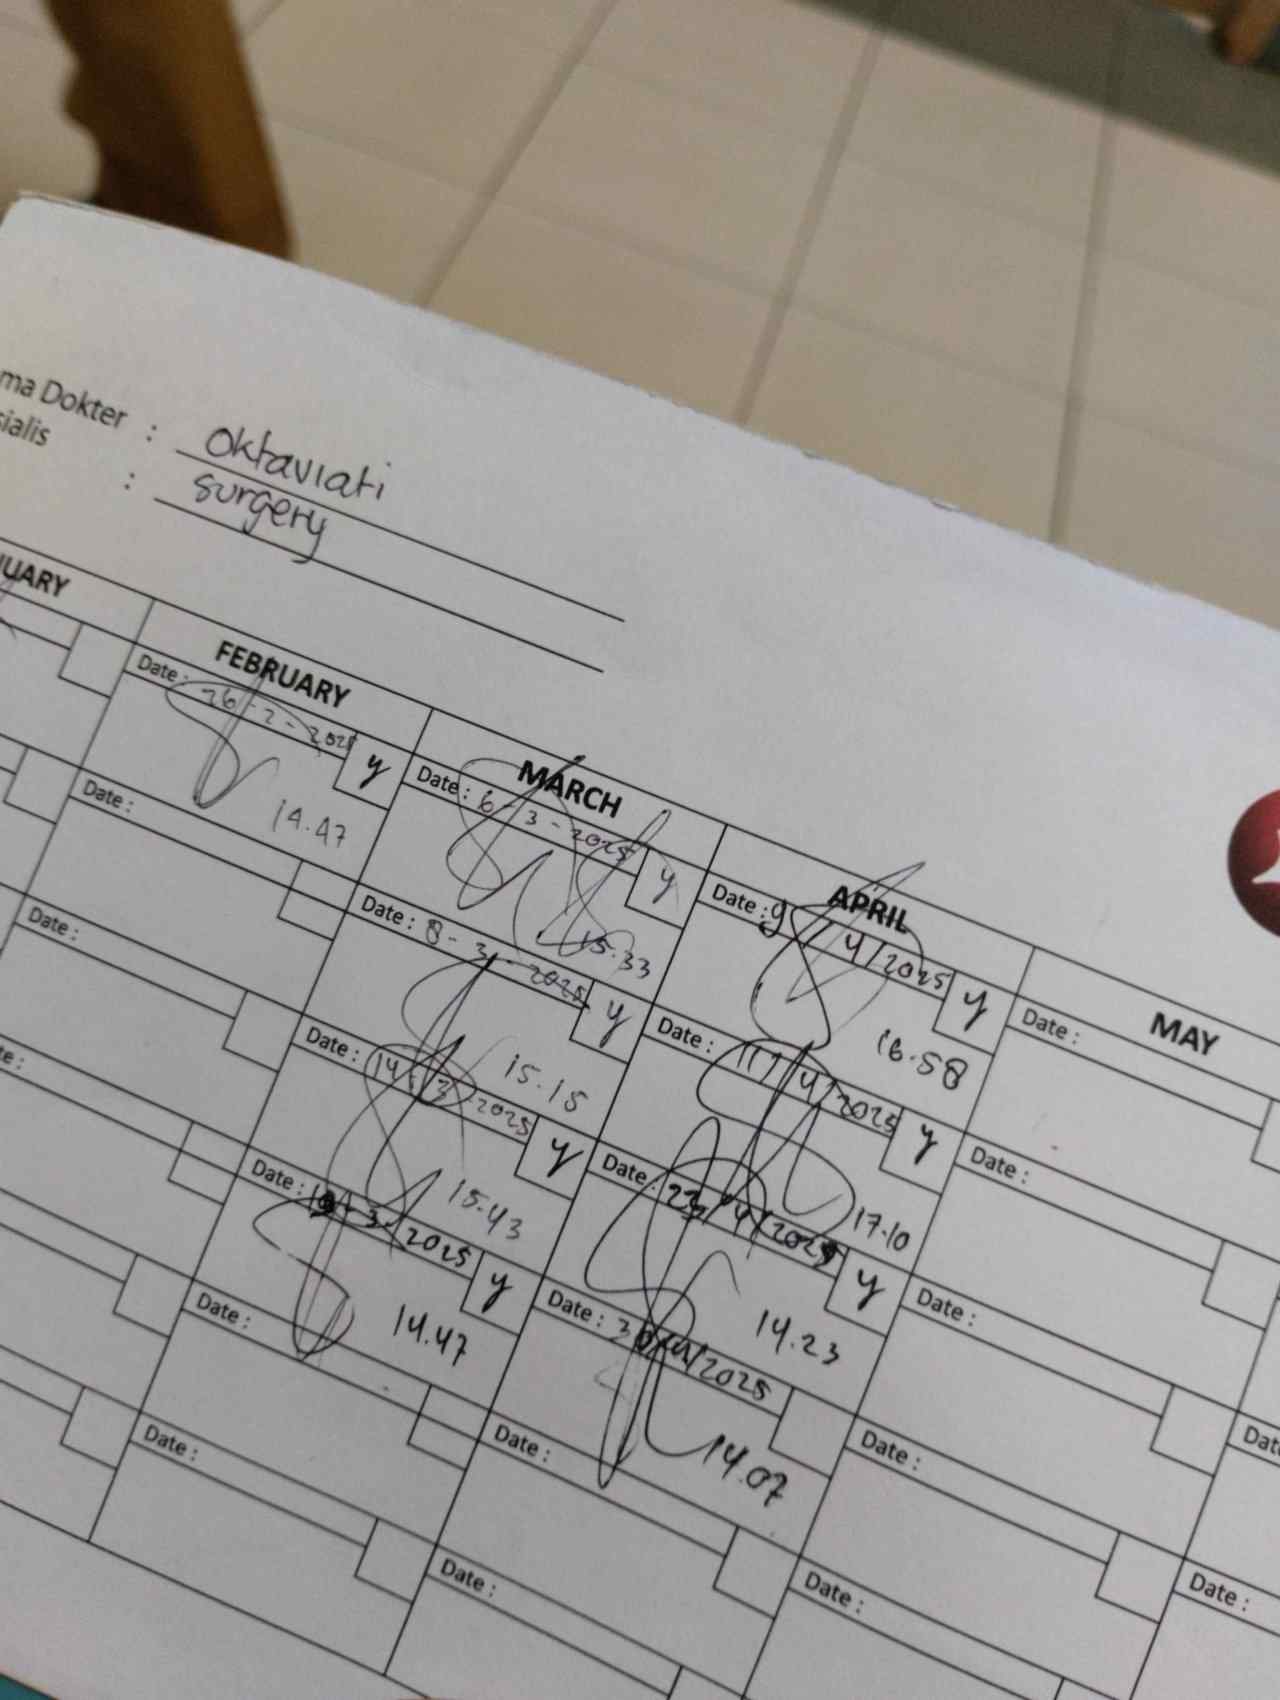 ma Dokter : oktaviati
sialis : surgery
UARY
FEBRUARY
Date: 26-2-2025 y
14.47
Date :
Date :
MARCH
Date: 6-3-2025 y
15.33
Date : 8-3-2025 y
15.15
Date : 14-3-2025 y
15.43
Date : -3-2025 y
14.47
Date :
Date :
APRIL
Date : 9/4/2025 y
16.58
Date : 11/4/2025 y
17.10
Date : 23/4/2025 y
14.23
Date : 30/4/2025
14.07
Date :
Date :
MAY
Date :
Date :
Date :
Date :
Date :
Date :